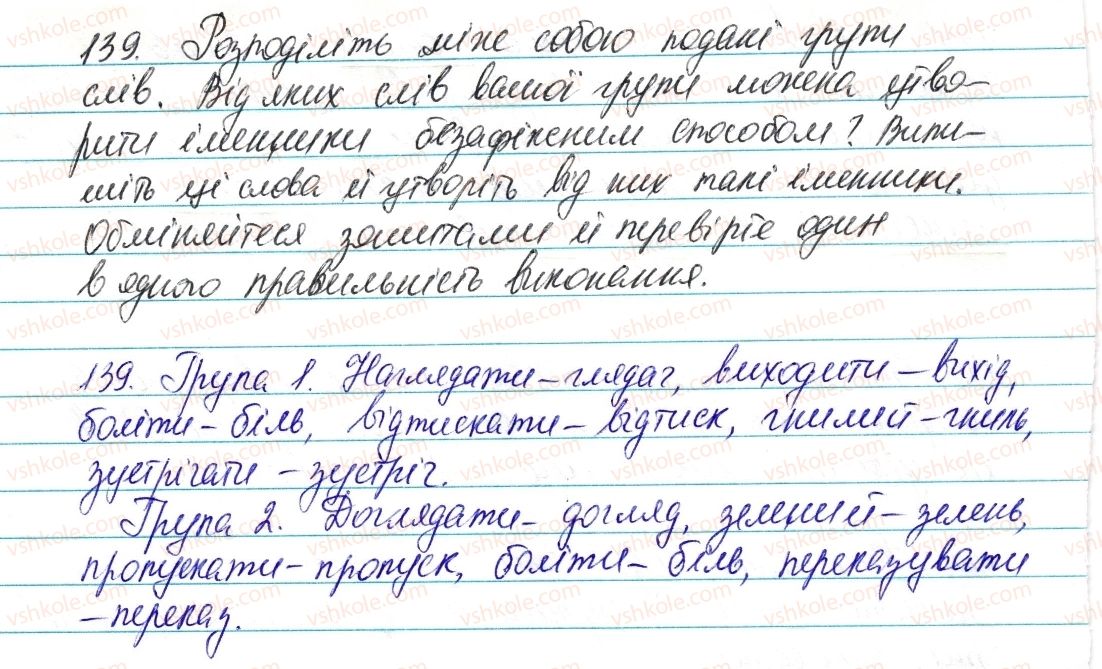 139. Розподіліть між собою подані групи
слів. Від яких слів вашої групи можна утво-
рити іменники безафіксним способом? Випи-
шіть ці слова й утворіть від них такі іменники.
Обміняйтеся зошитами й перевірте один
в одного правильність виконання.
139. Група 1. Наглядати – глядач, виходити – вихід,
боліти – біль, відтискати – відтиск, гнилий – гниль,
зустрічати – зустріч.
Група 2. Доглядати – догляд, зелений – зелень,
пропускати – пропуск, боліти – біль, переказувати
– переказ.